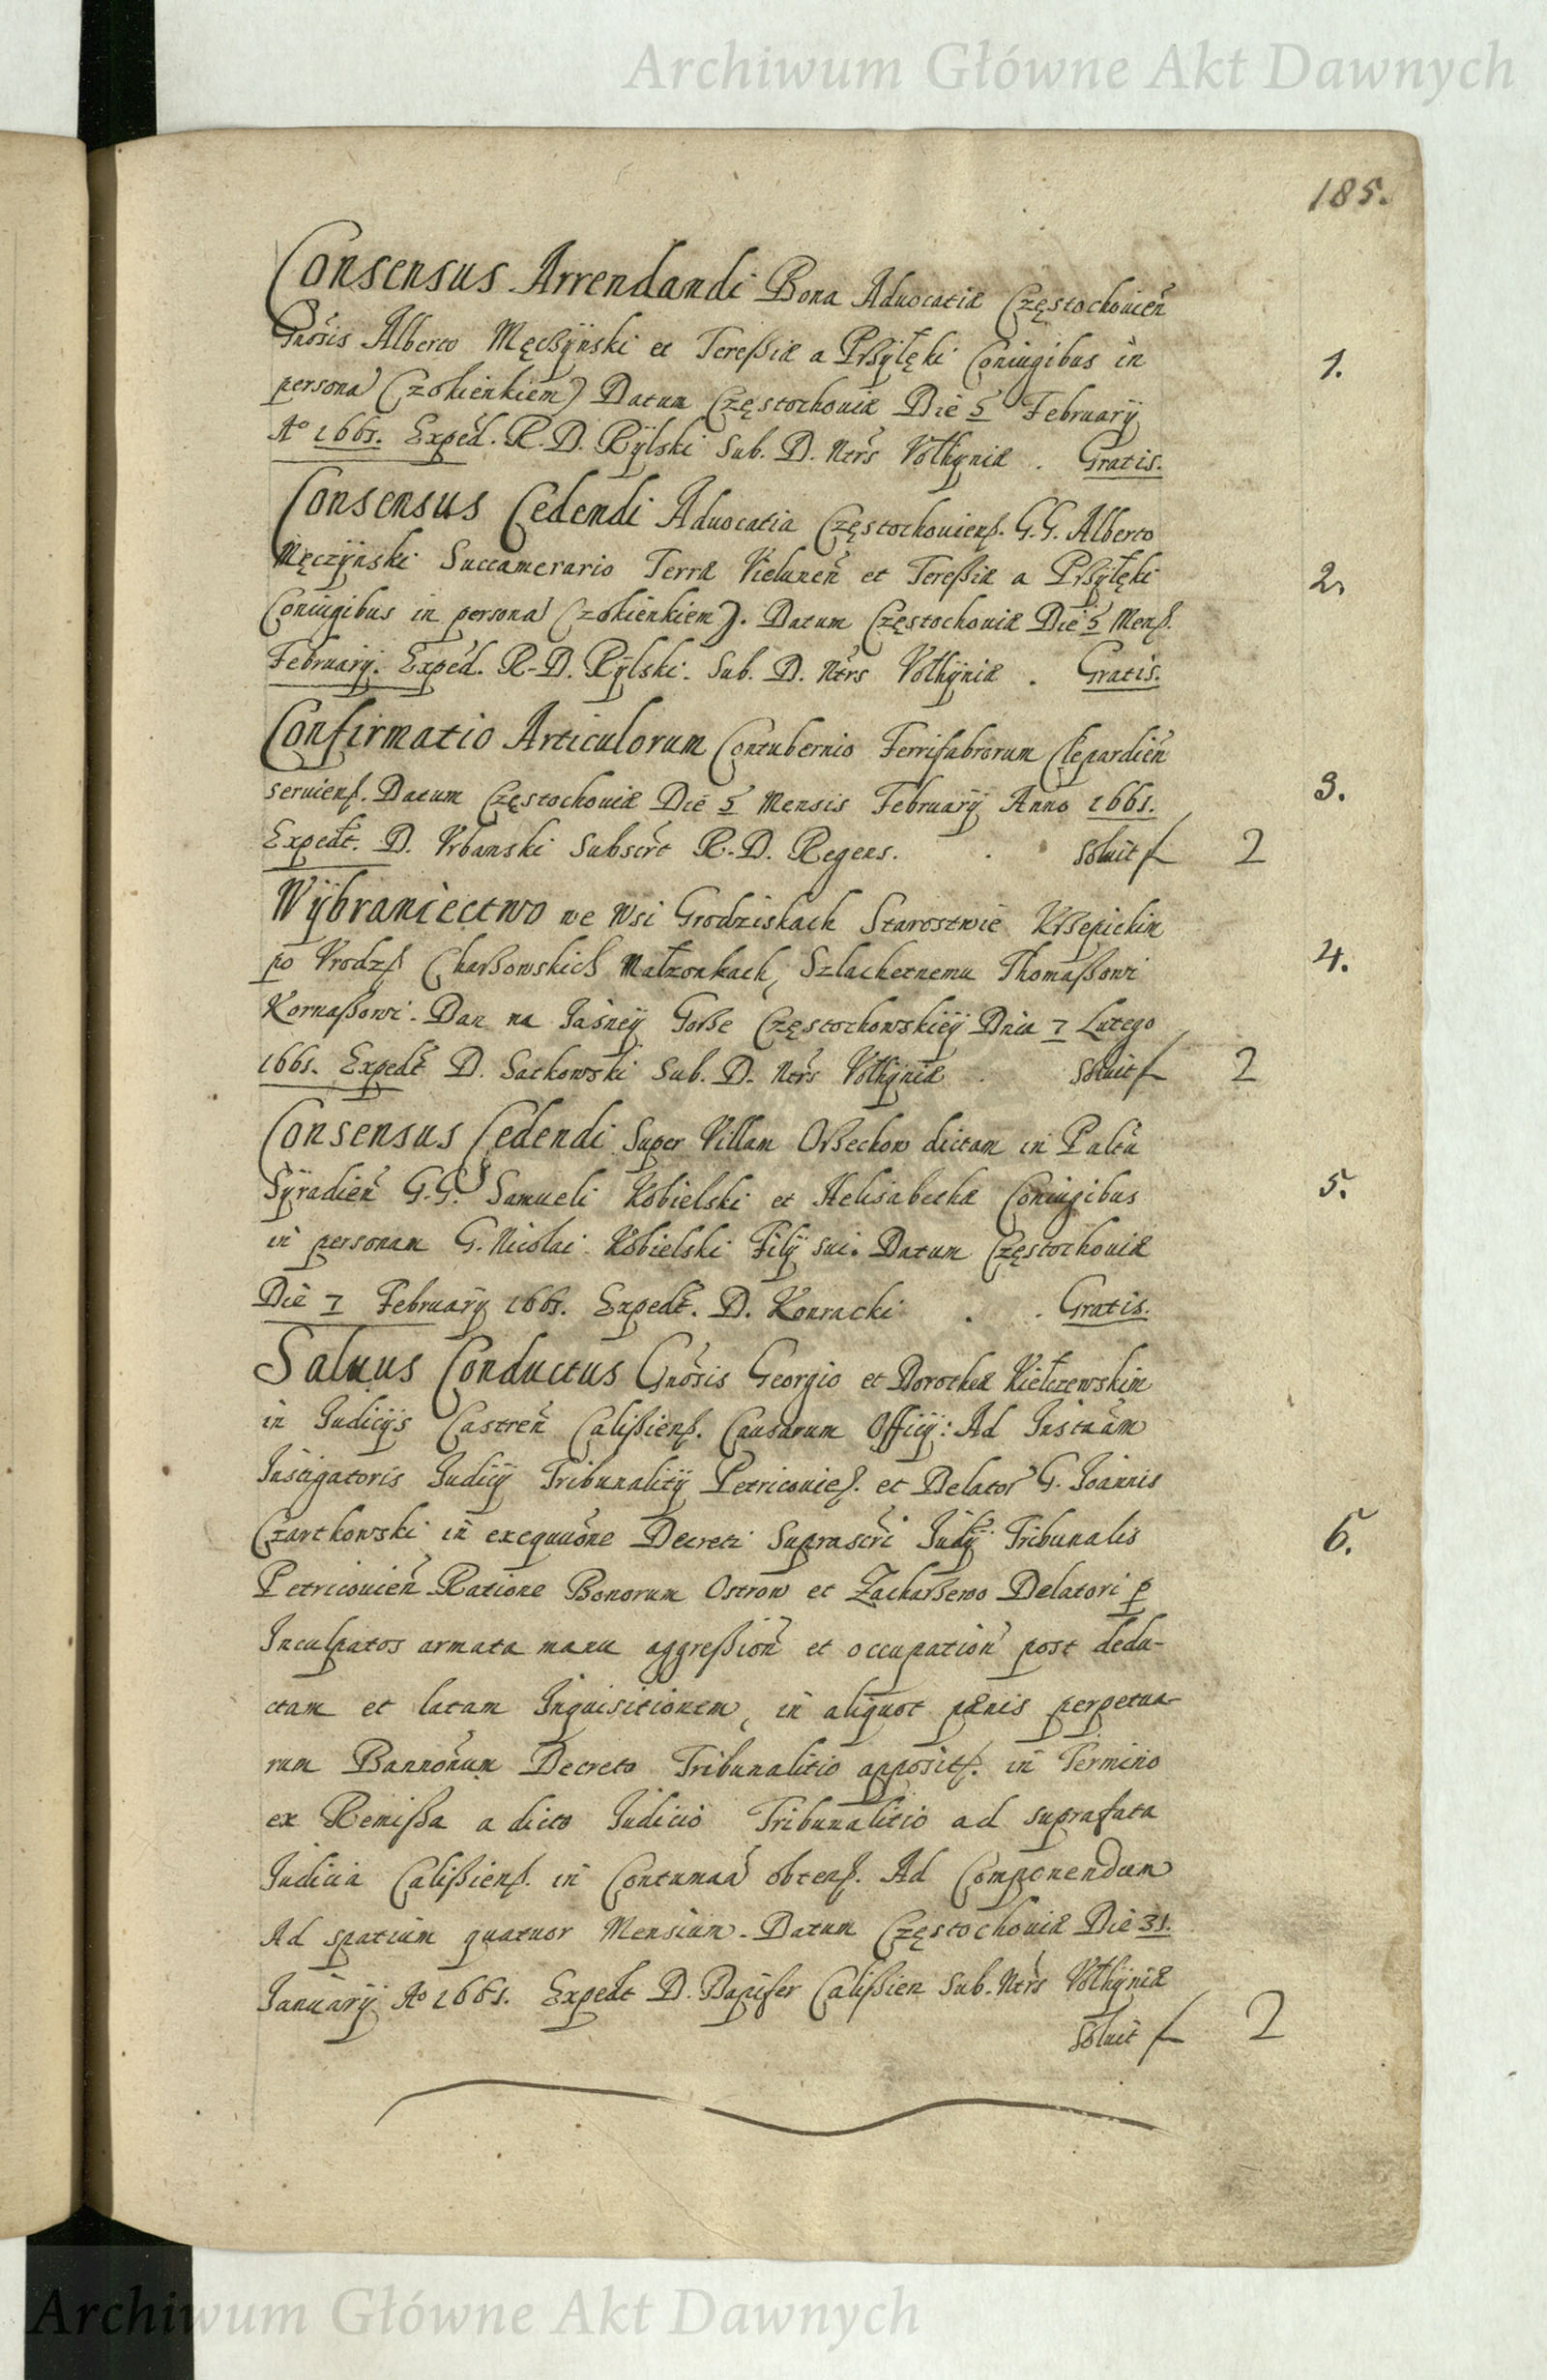 Archiwum Główne Akt Dawnych
185.
Consensus Arrendandi Bona Aduocatiæ Częstochouień
Gnosis Alberto Męcßÿnski et Tereßiæ a Prßÿłęki Coniugibus in
1.
persona (zokienkiem) Datum Częstochouiæ Die 5 Februarÿ
Aº 1661. Exped. R. D. Rÿlski Sub. D. Ntrs Volhÿniæ . Gratis.
Consensus Cedendi Aduocatia Częstochouienß. G.G. Alberto
Męczÿnski Succamerario Terræ Vielunen̄ et Tereßiæ a Prßÿłęki
2.
Coniugibus in persona (zokienkiem). Datum Częstochouiæ Die 5 Menß.
Februarÿ. Exped. R. D. Rÿlski. Sub. D. Ntrs Volhÿniæ . Gratis.
Confirmatio Articulorum Contubernio Ferrifabrorum Clepardień
seruienß. Datum Częstochouiæ Die 5 Mensis Februarÿ Anno 1661.
3.
Expedt. D. Vrbanski Subscrt R. D. Regens. . . Soluit f 2
Wÿbraniectwo we Wsi Grodziskach Starostwie Krßepickim
4.
po Vrodzß Charßowskich Małzonkach, Szlachetnemu Thomaßowi
Kornaßowi. Dan na Jasneÿ Gorße Częstochowskieÿ Dnia 7 Lutego
1661. Expedt D. Sackowski Sub. D. Ntrs Volhÿniæ . Soluit f 2
Consensus Cedendi Super Villam Orßechow dictam in Paltu
Sÿradień G.G. Samueli Kobielski et Helisabethæ Coniugibus
5.
in personam G. Nicolai Kobielski Filÿ sui. Datum Częstochouiæ
Die 7 Februarÿ 1661. Expedt. D. Konracki . . Gratis.
Saluus Conductus Gnosis Georgio et Dorotheæ Kiełczewskim
in Iudicÿs Castreń Calißienß. Causarum Officÿ: Ad Instnam
Instigatoris Iudicÿ Tribunalitÿ Petricouieß. et Delator G. Ioannis
Czartkowski in exequuone Decreti Suprascri Judÿ Tribunalis
6.
Petricouień Ratione Bonorum Ostrow et Zacharßewo Delatori p
Inculpatos armata manu aggreßioń et occupatioń post dedu-
ctam et latam Inquisitionem, in aliquot pænis perpetua-
rum Bannonum Decreto Tribunalitio appositß. in Termino
ex Remißa a dicto Iudicio Tribunalitio ad suprafata
Iudicia Calißienß. in Contumaa obtenß. Ad Componendum
Ad spatium quatuor Mensium. Datum Częstochouiæ Die 31.
Januarÿ Aº 1661. Expedt D. Dapifer Calißien Sub. Ntrs Volhÿniæ
Soluit f 2
Archiwum Główne Akt Dawnych